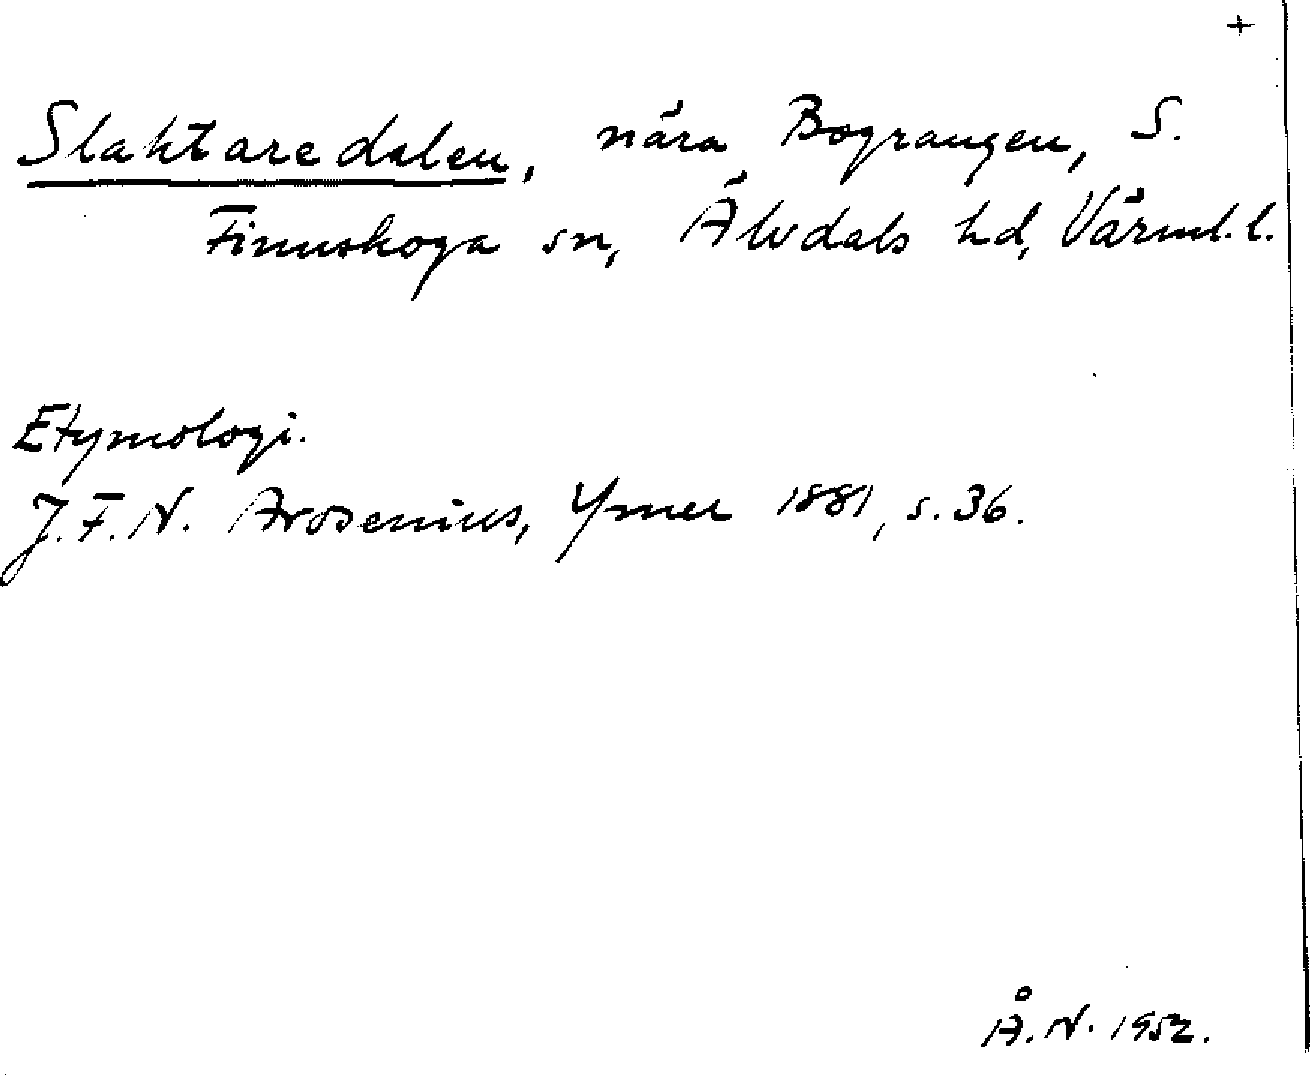 +
Slaktaredalen, nära Bograngen, S.
Finnskoga sn, Älvdals hd, Värml. l.
Etymologi.
J.F.N. Arosenius, Ymer 1881, s. 36.
Å. N. 1952.